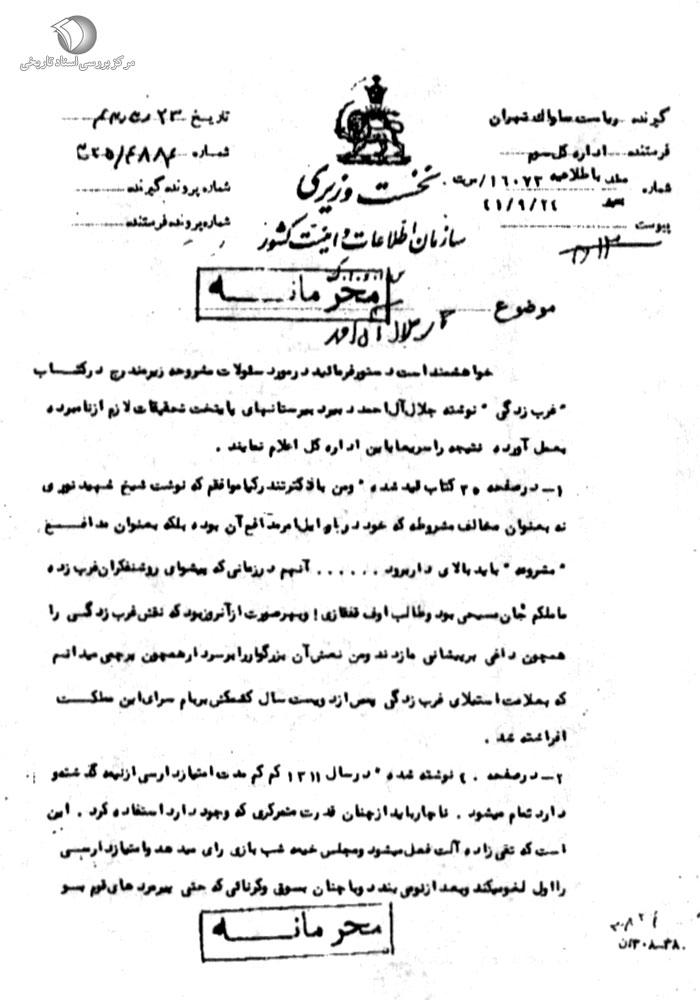 مرکز بررسی اسناد تاریخی
گیرنده ریاست ساواک تهران
فرستنده اداره کل سوم
شماره
پیوست
تاریخ
شماره ۳۲۵/
شماره پرونده گیرنده
شماره پرونده فرستنده
نخست وزیری
سازمان اطلاعات و امنیت کشور
محرمانه
موضوع جلال آل احمد
خواهشمند است دستور فرمائید در مورد مقولات مشروحه زیر مندرج در کتاب
" غرب زدگی " نوشته جلال آل احمد دبیر دبیرستانهای پایتخت تحقیقات لازم از نامبرده
بعمل آورده نتیجه را سریعا باین اداره کل اعلام نمایند .
۱- در صفحه ۳۵ کتاب قید شده " ومن با دکتر تندرکیا موافقم که نوشت شیخ شهید نوری
نه بعنوان مخالف مشروطه که خود در اوایل امر مدافع آن بوده بلکه بعنوان مدافع
" مشروعه " باید بالای دار برود ...... آنهم در زمانی که پیشوای روشنفکران غرب زده
ما ملکم خان مسیحی بود و طالب اوف قفقازی ! وبهر صورت از آنروز بود که نقش غرب زدگی را
همچون داغی بر پیشانی ما زدند ومن نعش آن بزرگوار را بر سر دار همچون پرچمی میدانم
که بعلامت استیلای غرب زدگی پس از دویست سال کشمکش بر بام سرای این مملکت
افراشته شد .
۲- در صفحه ۴۰ نوشته شده " در سال ۱۳۱۱ کم کم مدت امتیاز دارسی از نیمه گذشته و
دارد تمام میشود . ناچار باید از چنان قدرت متمرکزی که وجود دارد استفاده کرد . این
است که تقی زاده آلت فعل میشود ومجلس خیمه شب بازی رای میدهد وامتیاز دارسی
را اول لغو میکند وبعد از نو می بندد وبا چنان بوق وکرنائی که حتی پیرمردهای قوم
محرمانه